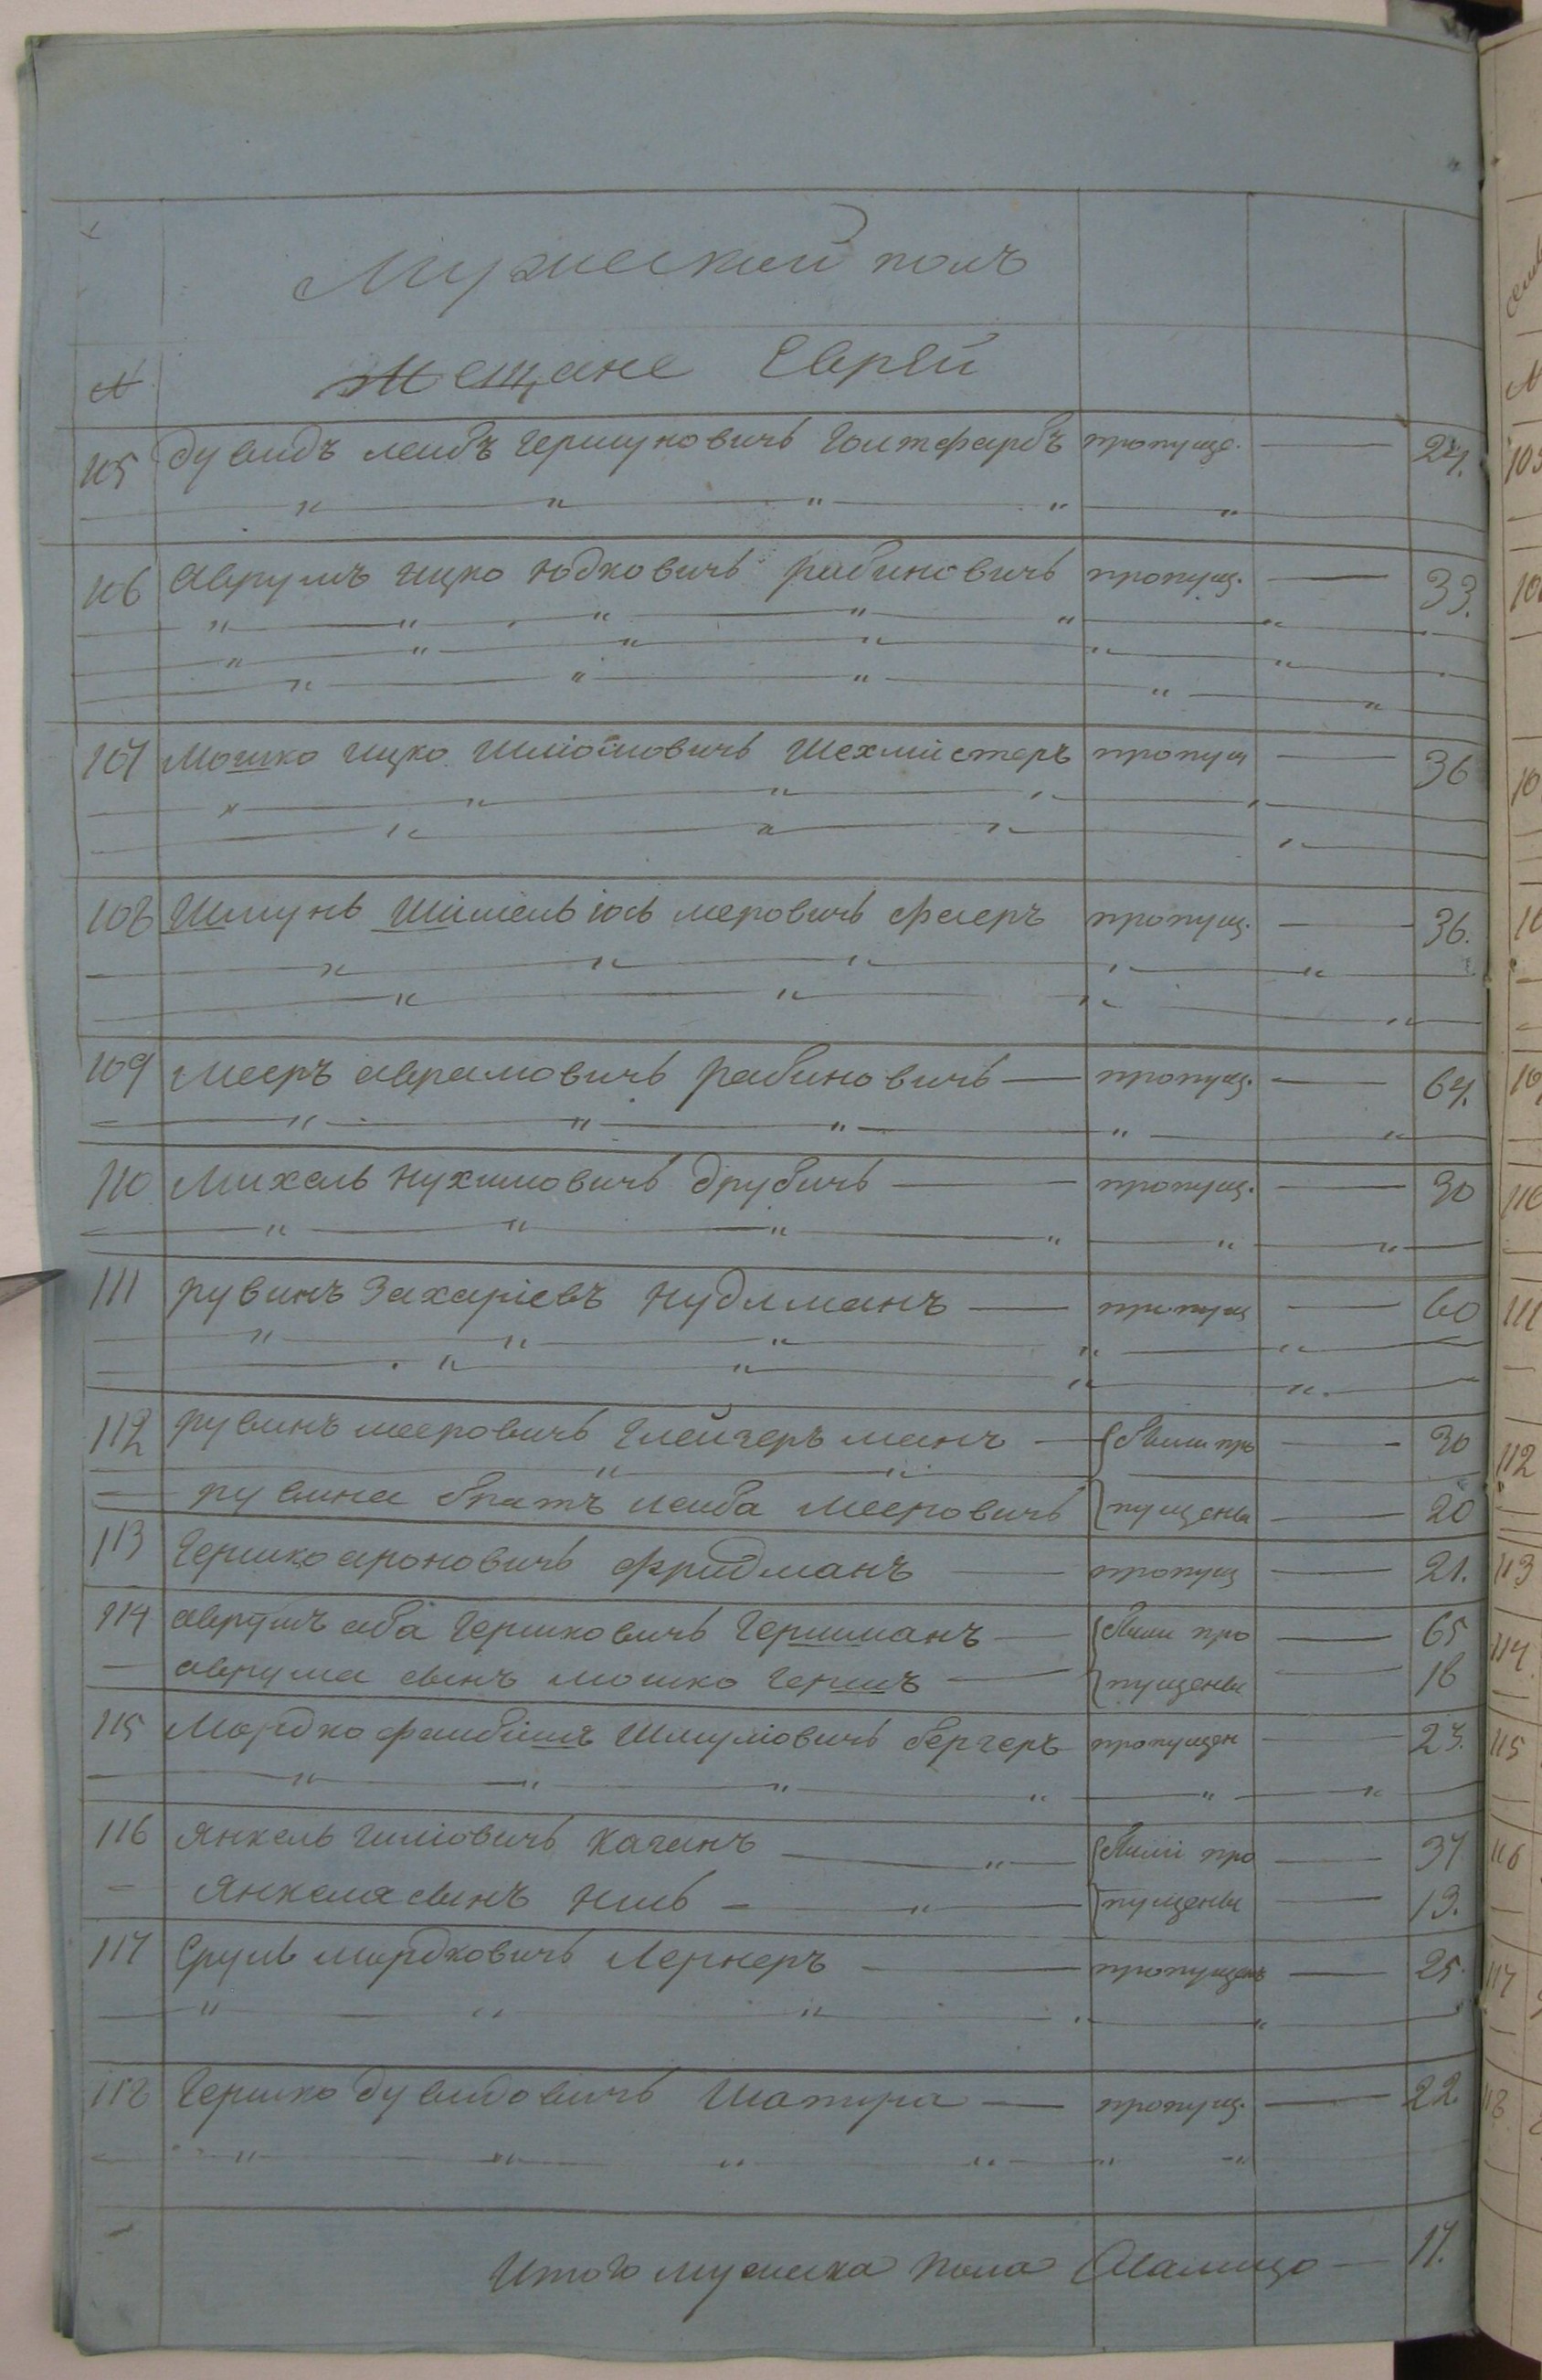 Мужескій полъ
№ Мещане Еврѣи
105 Дувидъ лейбъ Гершуновичъ Голтфарбъ пропуще. — 24.
106 Аврумъ ицко Юдковичъ Рабиновичъ пропущ. — 33.
107 Мошко ицко Шліомовичъ Шехмистеръ пропущ — 36
108 Шмунь Шіліель іось меровичъ фееръ пропущ. — 36.
109 Мееръ аврамовичъ Рабиновичъ — пропущ. — 64.
110 Михель Нухимовичъ Друбичъ — пропущ. — 30
111 рувинъ Захаріевъ Нудлманъ — пропущ — 60
112 рувинъ мееровичъ Глейзерманъ — были про — 30
— рувина братъ лейба Мееровичъ пущены — 20
113 Гершко ароновичъ Фридманъ — пропущ — 21.
114 аврумъ аба Гершковичъ Гершманъ — были про — 65
— аврума сынъ мошко Гершъ — пущены — 16
115 Мордко файбишъ Шмуліовичъ бергеръ пропущен — 23.
116 Янкель Гиліовичъ Каганъ — были про — 37
— Янкеля сынъ — пущены — 13.
117 Сруль мордковичъ Лернеръ — пропущенъ — 25.
118 Гершко дувидовичъ Шапира — пропущ. — 22.
Итого мужеска пола налицо — 17.